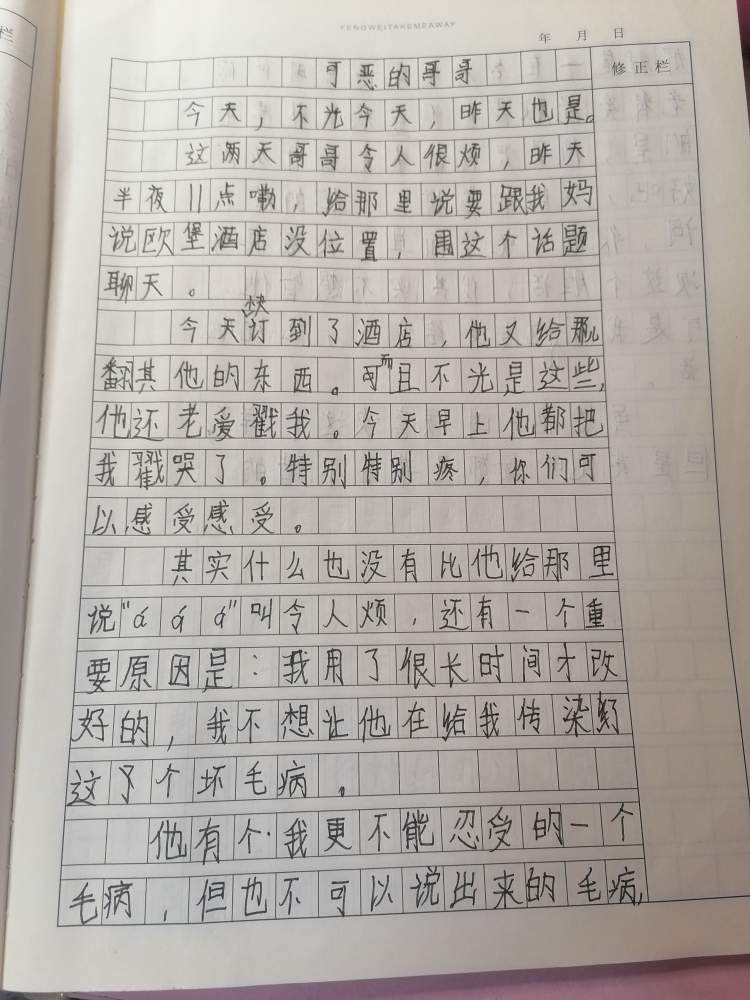 FENGWEITAKEMEAWAY
年 月 日
栏
修正栏
可恶的哥哥
今天，不光今天，昨天也是。
这两天哥哥令人很烦，昨天
半夜11点嘞，给那里说要跟我妈
说欧堡酒店没位置，围这个话题
聊天。
快
今天订到了酒店，他又给那儿
翻其他的东西。而且不光是这些，
他还老爱戳我。今天早上他都把
我戳哭了。特别特别疼，你们可
以感受感受。
其实什么也没有比他给那里
说“á á á”叫令人烦，还有一个重
要原因是：我用了很长时间才改
好的，我不想让他在给我传染
这个坏毛病。
他有个我更不能忍受的一个
毛病，但也不可以说出来的毛病，